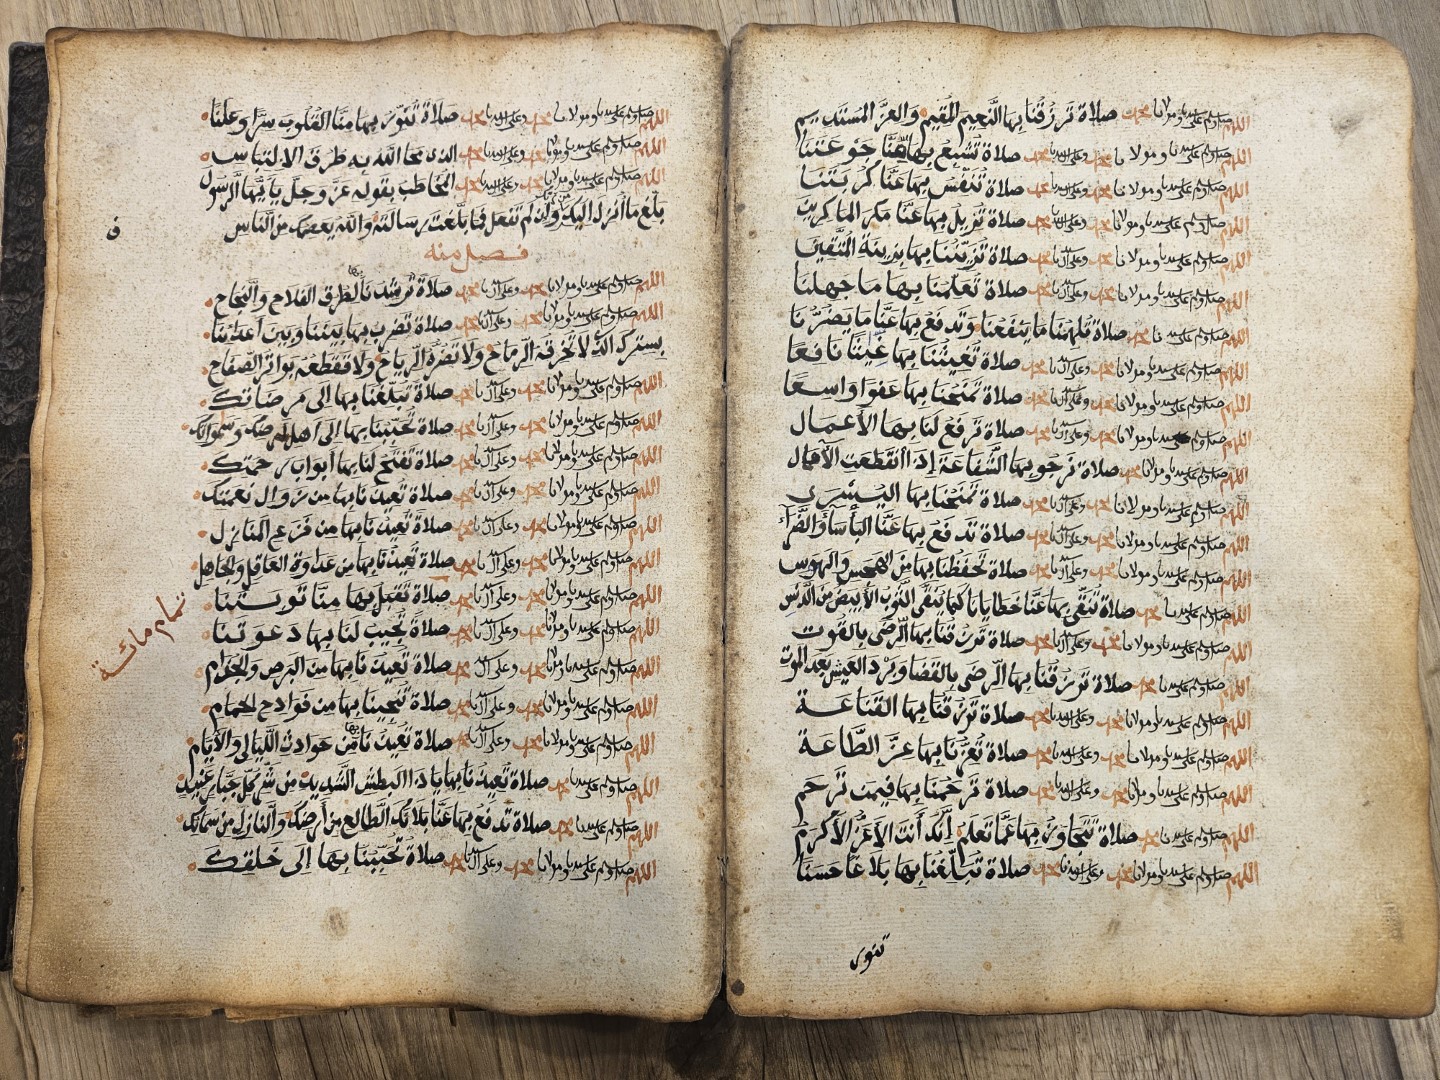 اللهم صل وسلم على سيدنا ومولانا محمد صلاة ترزقنا بها النعيم المقيم والعز المستديم
اللهم صل وسلم على سيدنا ومولانا محمد وعلى آل سيدنا محمد صلاة تشبع بها منا جوعتنا
اللهم صل وسلم على سيدنا ومولانا محمد وعلى آل سيدنا محمد صلاة تنفس بها عنا كربتنا
اللهم صل وسلم على سيدنا ومولانا محمد وعلى آل سيدنا محمد صلاة تزيل بها عنا مكر الماكرين
اللهم صل وسلم على سيدنا ومولانا محمد وعلى آل سيدنا محمد صلاة تزيننا بها بزينة المتقين
اللهم صل وسلم على سيدنا ومولانا محمد وعلى آل سيدنا محمد صلاة تعلمنا بها ما جهلنا
اللهم صل وسلم على سيدنا محمد صلاة تلهمنا ما ينفعنا وتدفع بها عنا ما يضرنا
اللهم صل وسلم على سيدنا ومولانا محمد وعلى آل سيدنا محمد صلاة تغيثنا بها غيثا نافعا
اللهم صل وسلم على سيدنا ومولانا محمد وعلى آل سيدنا محمد صلاة تمنحنا بها عفوا واسعا
اللهم صل وسلم على سيدنا ومولانا محمد وعلى آل سيدنا محمد صلاة ترفع لنا بها الأعمال
اللهم صل وسلم على سيدنا ومولانا محمد صلاة نرجو بها الشفاعة إذا انقطعت الآمال
اللهم صل وسلم على سيدنا ومولانا محمد وعلى آل سيدنا محمد صلاة تمنحنا بها اليسرى
اللهم صل وسلم على سيدنا ومولانا محمد وعلى آل سيدنا محمد صلاة تدفع بها عنا البأساء والضراء
اللهم صل وسلم على سيدنا ومولانا محمد وعلى آل سيدنا محمد صلاة تحفظنا بها من الهجس والهوس
اللهم صل وسلم على سيدنا محمد صلاة تنقي بها عنا خطايانا كما ينقى الثوب الأبيض من الدنس
اللهم صل وسلم على سيدنا ومولانا محمد وعلى آل سيدنا محمد صلاة ترزقنا بها الرضى بالقوت
اللهم صل وسلم على سيدنا ومولانا محمد صلاة ترزقنا بها الرضى بالقضا وبرد العيش بعد الموت
اللهم صل وسلم على سيدنا ومولانا محمد وعلى آل سيدنا محمد صلاة ترزقنا بها القناعة
اللهم صل وسلم على سيدنا ومولانا محمد وعلى آل سيدنا محمد صلاة تعزنا بها عز الطاعة
اللهم صل وسلم على سيدنا ومولانا محمد وعلى آل سيدنا محمد صلاة ترحمنا بها فيمن ترحم
اللهم صل وسلم على سيدنا ومولانا محمد صلاة تتجاوز بها عما تعلم إنك أنت الأعز الأكرم
اللهم صل وسلم على سيدنا ومولانا محمد وعلى آل سيدنا محمد صلاة تبلغنا بها بلاغا حسنا
تنور
اللهم صل وسلم على سيدنا ومولانا محمد وعلى آل سيدنا محمد صلاة تنور بها منا القلوب سرا وعلنا
اللهم صل وسلم على سيدنا ومولانا محمد وعلى آل سيدنا محمد الذي محا الله به طرق الالتباس
اللهم صل وسلم على سيدنا ومولانا محمد وعلى آل سيدنا محمد المخاطب بقوله عز وجل يا أيها الرسول
بلغ ما أنزل إليك وإن لم تفعل فما بلغت رسالته والله يعصمك من الناس
ف
فصل منه
اللهم صل وسلم على سيدنا ومولانا محمد وعلى آل سيدنا محمد صلاة ترشدنا بها لطرق الفلاح والنجاح
اللهم صل وسلم على سيدنا ومولانا محمد وعلى آل سيدنا محمد صلاة تضرب بها بيننا وبين أعدائنا
بسترك الذي لا تخرقه الرماح ولا تضره الرياح ولا تقطعه بواتر الصفاح
اللهم صل وسلم على سيدنا ومولانا محمد وعلى آل سيدنا محمد صلاة تبلغنا بها إلى مرضاتك
اللهم صل وسلم على سيدنا ومولانا محمد وعلى آل سيدنا محمد صلاة تحببنا بها إلى أهل أرضك وسمواتك
اللهم صل وسلم على سيدنا ومولانا محمد وعلى آل سيدنا محمد صلاة تفتح لنا بها أبواب رحمتك
اللهم صل وسلم على سيدنا ومولانا محمد وعلى آل سيدنا محمد صلاة تعيذنا بها من زوال نعمتك
اللهم صل وسلم على سيدنا ومولانا محمد وعلى آل سيدنا محمد صلاة تعيذنا بها من فزع المنازل
اللهم صل وسلم على سيدنا ومولانا محمد وعلى آل سيدنا محمد صلاة تعيذنا بها من عداوة العاقل والجاهل
اللهم صل وسلم على سيدنا ومولانا محمد وعلى آل سيدنا محمد صلاة تقبل بها منا توبتنا
تمام مائة
اللهم صل وسلم على سيدنا ومولانا محمد وعلى آل سيدنا محمد صلاة تجيب لنا بها دعوتنا
اللهم صل وسلم على سيدنا ومولانا محمد وعلى آل سيدنا محمد صلاة تعيذنا بها من البرص والجذام
اللهم صل وسلم على سيدنا ومولانا محمد وعلى آل سيدنا محمد صلاة تنجينا بها من فوادح الحمام
اللهم صل وسلم على سيدنا ومولانا محمد وعلى آل سيدنا محمد صلاة تعيذنا بها من حوادث الليالي والأيام
اللهم صل وسلم على سيدنا ومولانا محمد صلاة تعيذنا بها يا ذا البطش الشديد من شر كل جبار عنيد
اللهم صل وسلم على سيدنا محمد صلاة تدفع بها عنا بلائك الطالع من أرضك والنازل من سمائك
اللهم صل وسلم على سيدنا ومولانا محمد وعلى آل سيدنا محمد صلاة تحببنا بها إلى خلقك